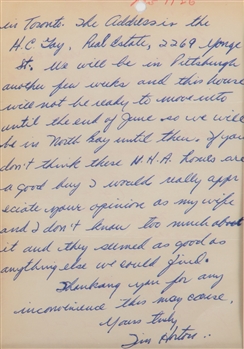 in Toronto. The Address is the
H.C. Fay, Real Estate, 2269 Yonge
St. We will be in Pittsburgh
another few weeks and this house
will not be ready to move into
until the end of June so we will
be in North Bay until then. If you
don't think these N.H.A. houses are
a good buy I would really appr
eciate your opinion as my wife
and I don't know too much about
it and they seemed as good as
anything else we could find.
Thanking you for any
inconvenience this may cause,
Yours truly
Tim Horton.